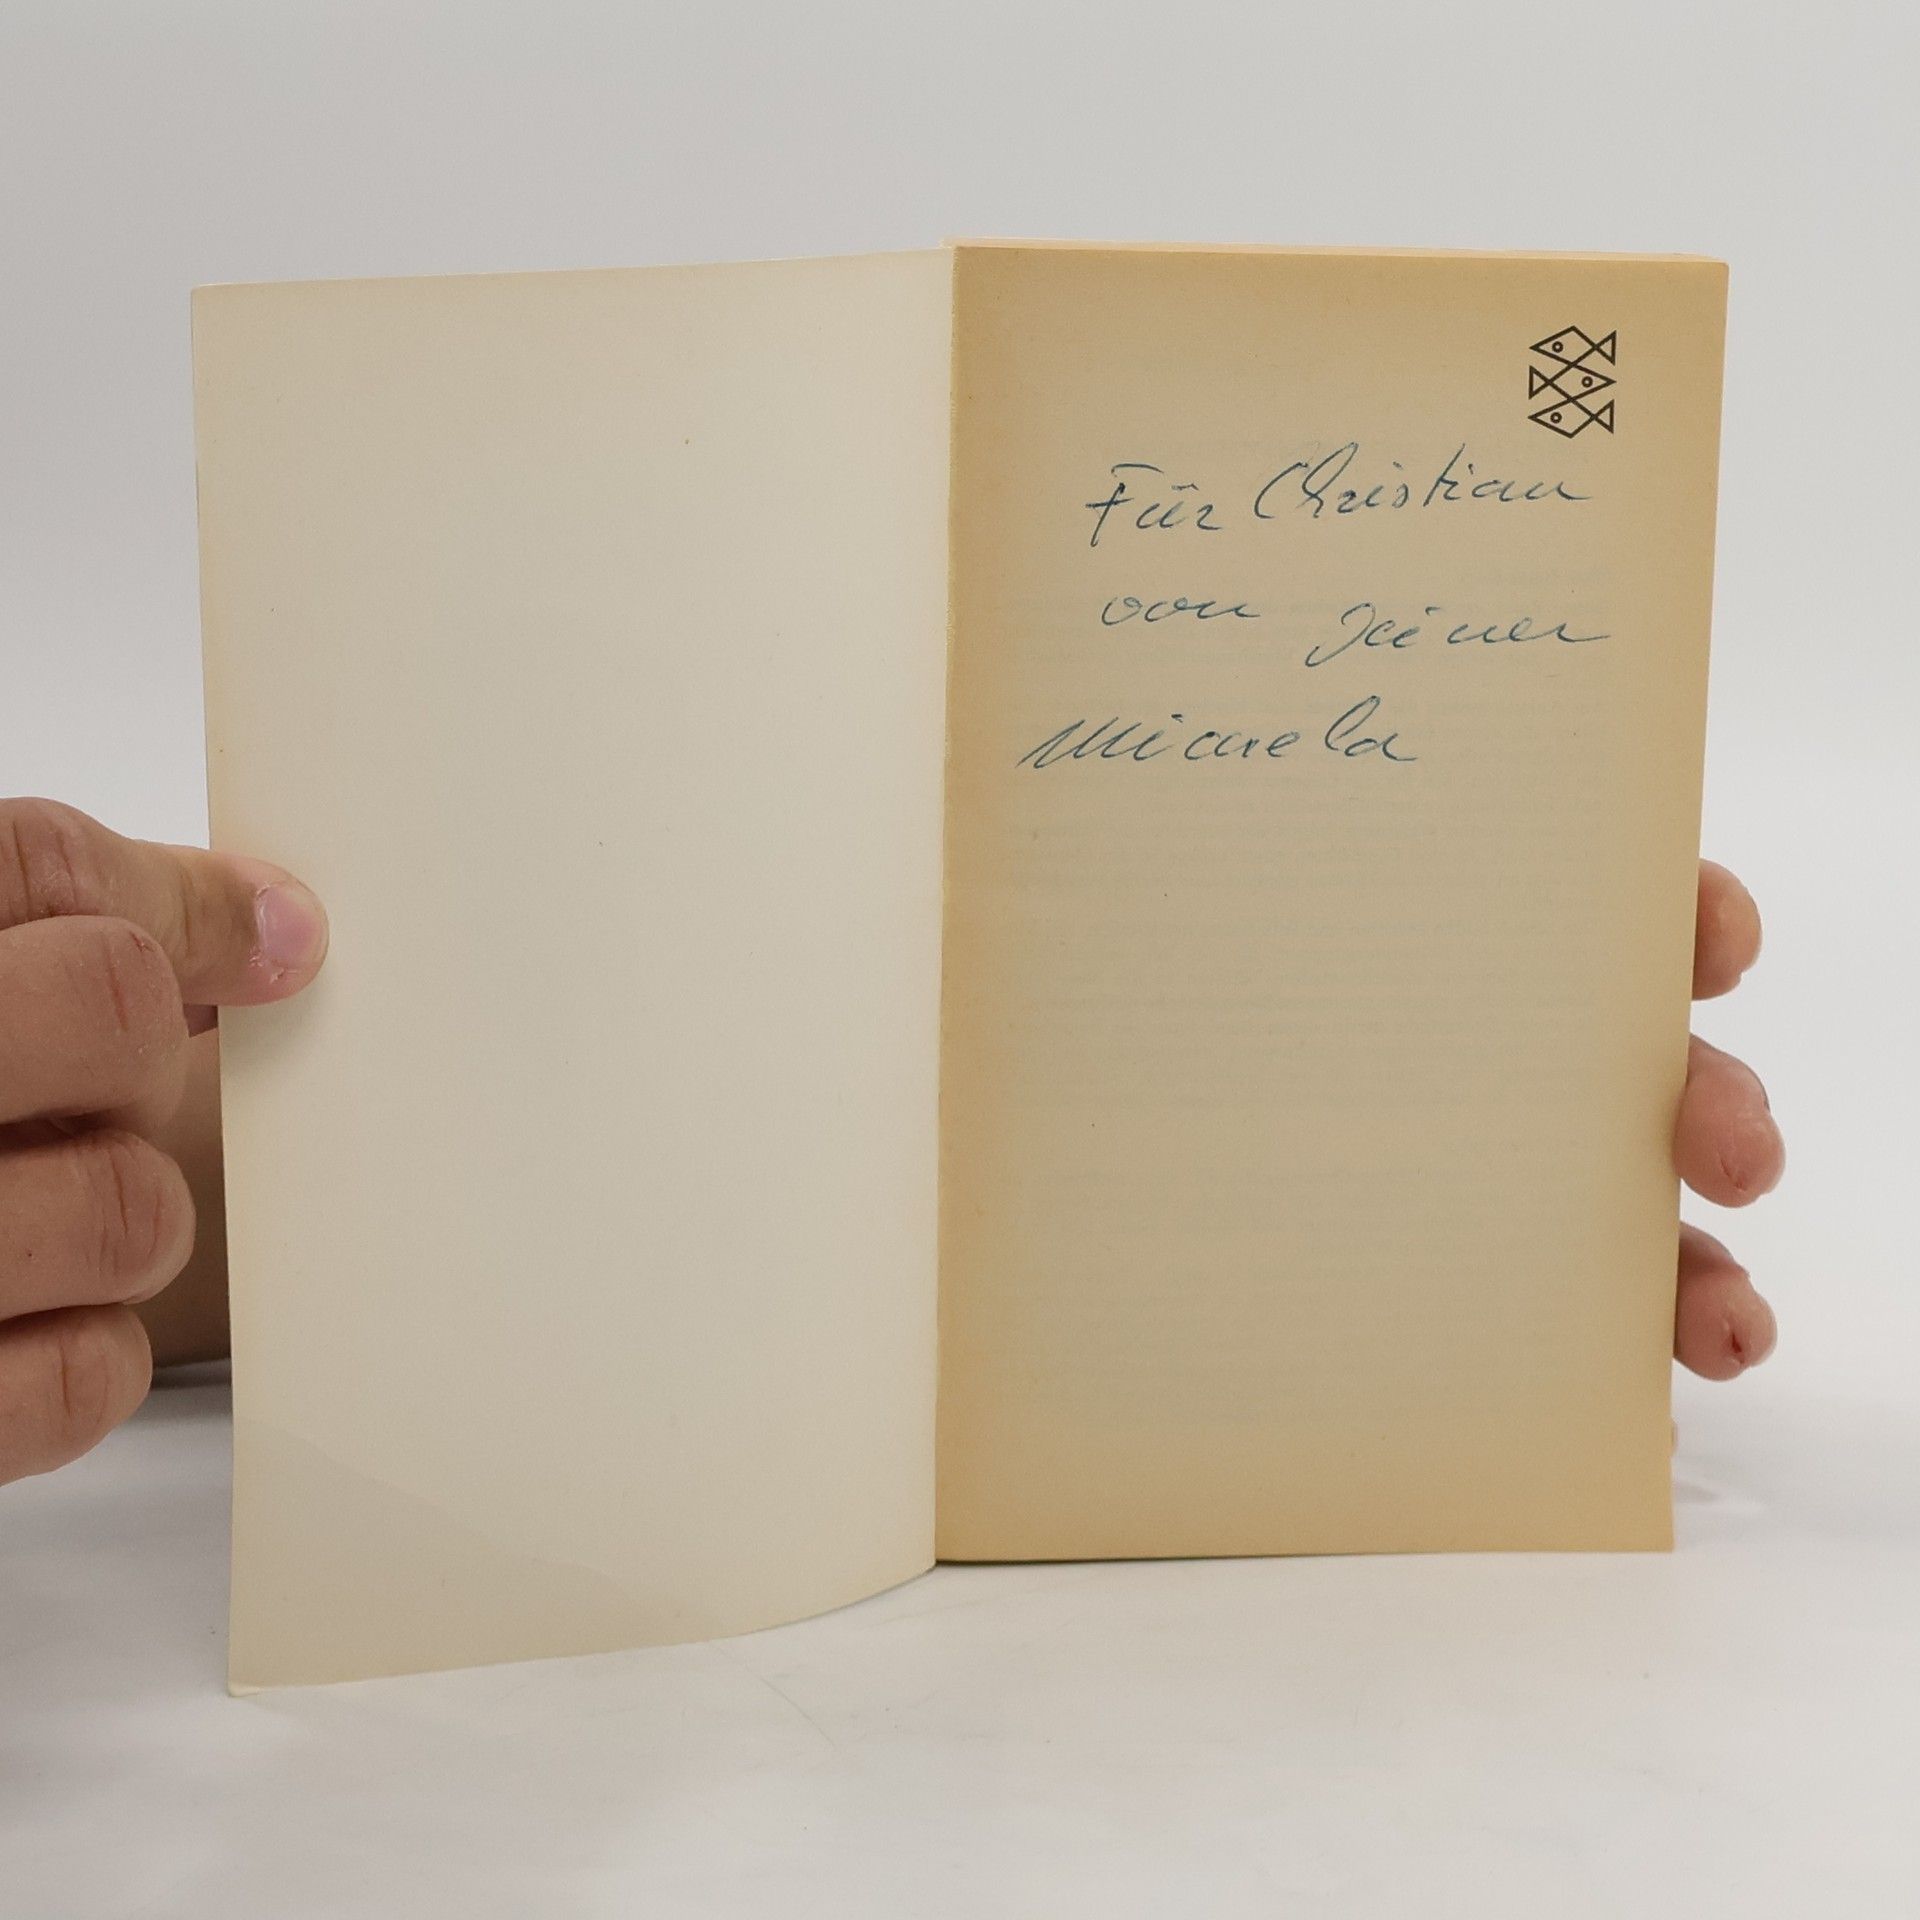 Für Christian
von Deiner
Micaela